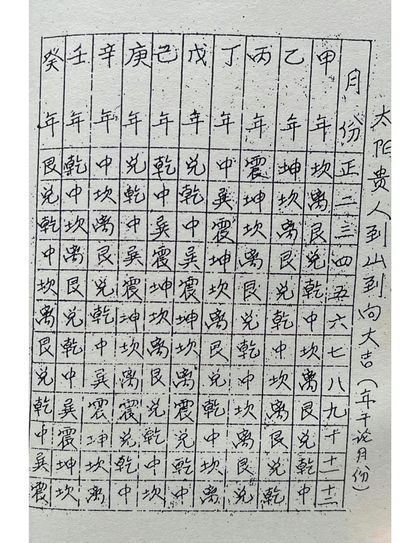 太阳贵人到山到向大吉（年干论月份）
月份正二三四五六七八九十十一十二
甲年坎离艮兑乾中坎离艮兑乾中
乙年坤坎离艮兑乾中坎离艮兑乾
丙年震坤坎离艮兑乾中坎离艮兑
丁年中巽震坤坎离艮兑乾中坎离
戊年兑乾中巽震坤坎离艮兑乾中
己年乾中巽震坤坎离艮兑乾中坎
庚年兑乾中巽震坤坎离震兑乾中
辛年中坎离艮兑乾中巽震坤坎离
壬年乾中坎离艮兑乾中巽震坤坎
癸年艮兑乾中坎离艮兑乾中巽震